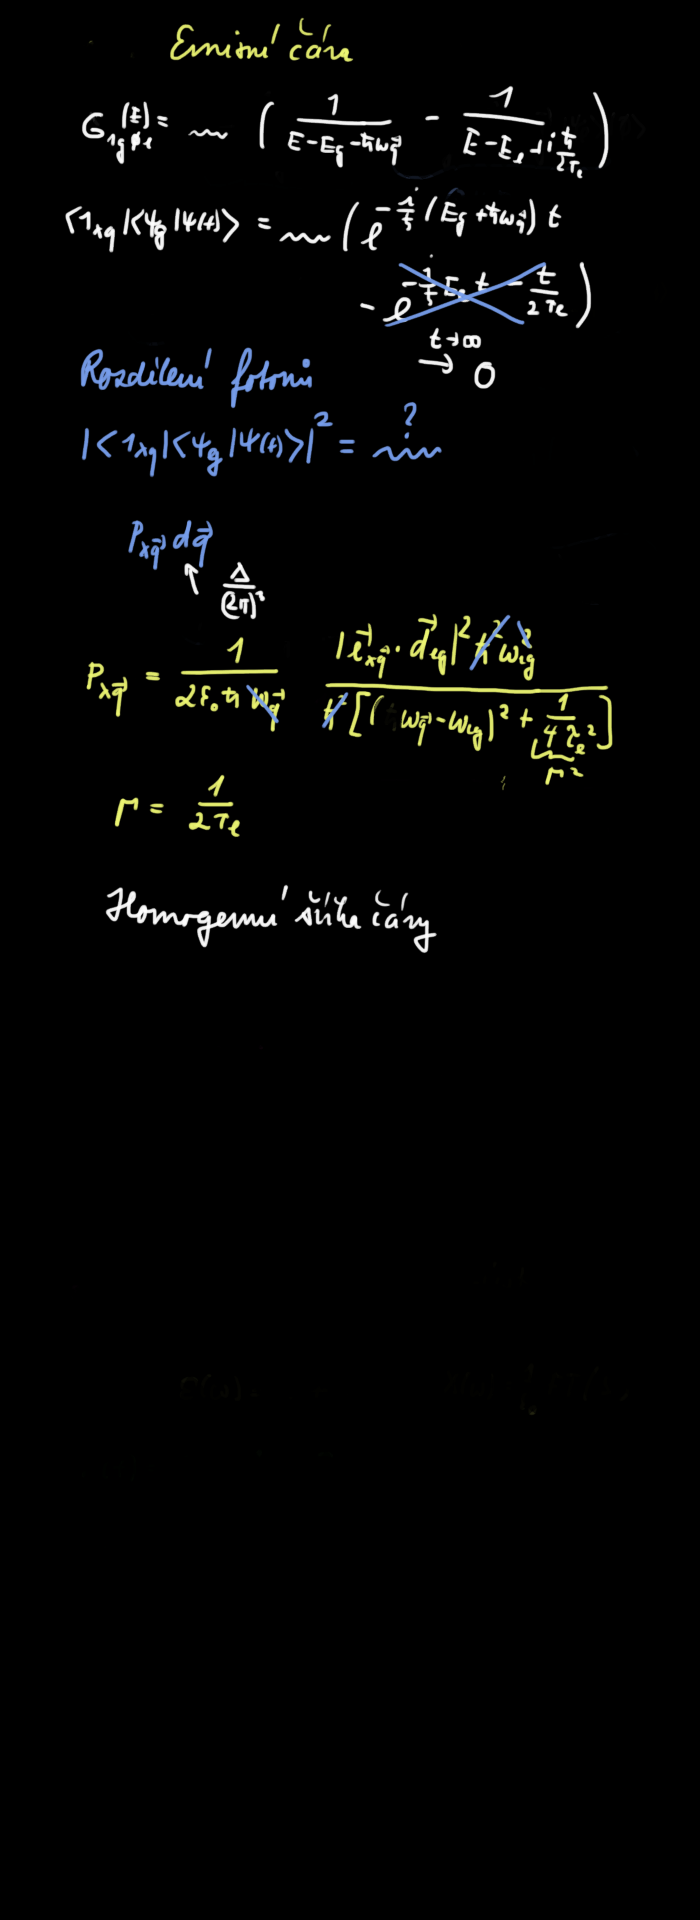 Emisní čára
G_{1g φe}^{(E)} = ~~ ( \frac{1}{E - E_g - ħω_{\vec{q}}} - \frac{1}{E - E_e + i\frac{ħ}{2τ_e}} )
⟨1_{λq}|⟨ψ_g|ψ(t)⟩ = ~~ ( e^{-\frac{i}{ħ}(E_g + ħω_{\vec{q}}) t}
- e^{-\frac{i}{ħ}E_e t - \frac{t}{2τ_e}} )
t→∞
→ 0
Rozdělení fotonů
|⟨1_{λq}|⟨ψ_g|ψ(t)⟩|^2 \overset{?}{=} ~~
P_{λ\vec{q}} d\vec{q}
↑ \frac{Δ}{(2π)^3}
P_{λ\vec{q}} = \frac{1}{2ε_0 ħ ω_{\vec{q}}} \frac{|\vec{e}_{λ\vec{q}} · \vec{d}_{eg}|^2 ħ^2 ω_{eg}^2}{ħ^2 [(ω_{\vec{q}} - ω_{eg})^2 + \frac{1}{4τ_e^2}]}
Γ^2
Γ = \frac{1}{2τ_e}
Homogenní šířka čáry